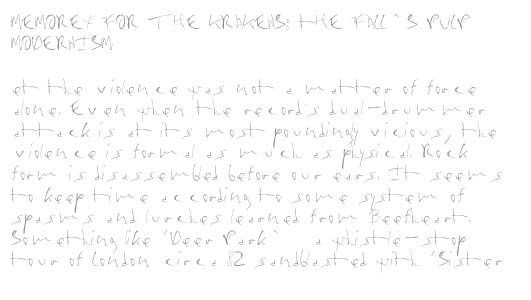 MEMOREX FOR THE KRAKENS: THE FALL`S PULP
MODERNISM
et the violence was not a matter of force
alone. Even when the record's dual-drummer
attack is at its most poundingly vicious, the
violence is formal as much as physical. Rock
form is disassembled before our ears. It seems
to keep time according to some system of
spasms and lurches learned from Beefheart.
Something like 'Deer Park` a whistle-stop
tour of London circa 82 sandblasted with 'Sister